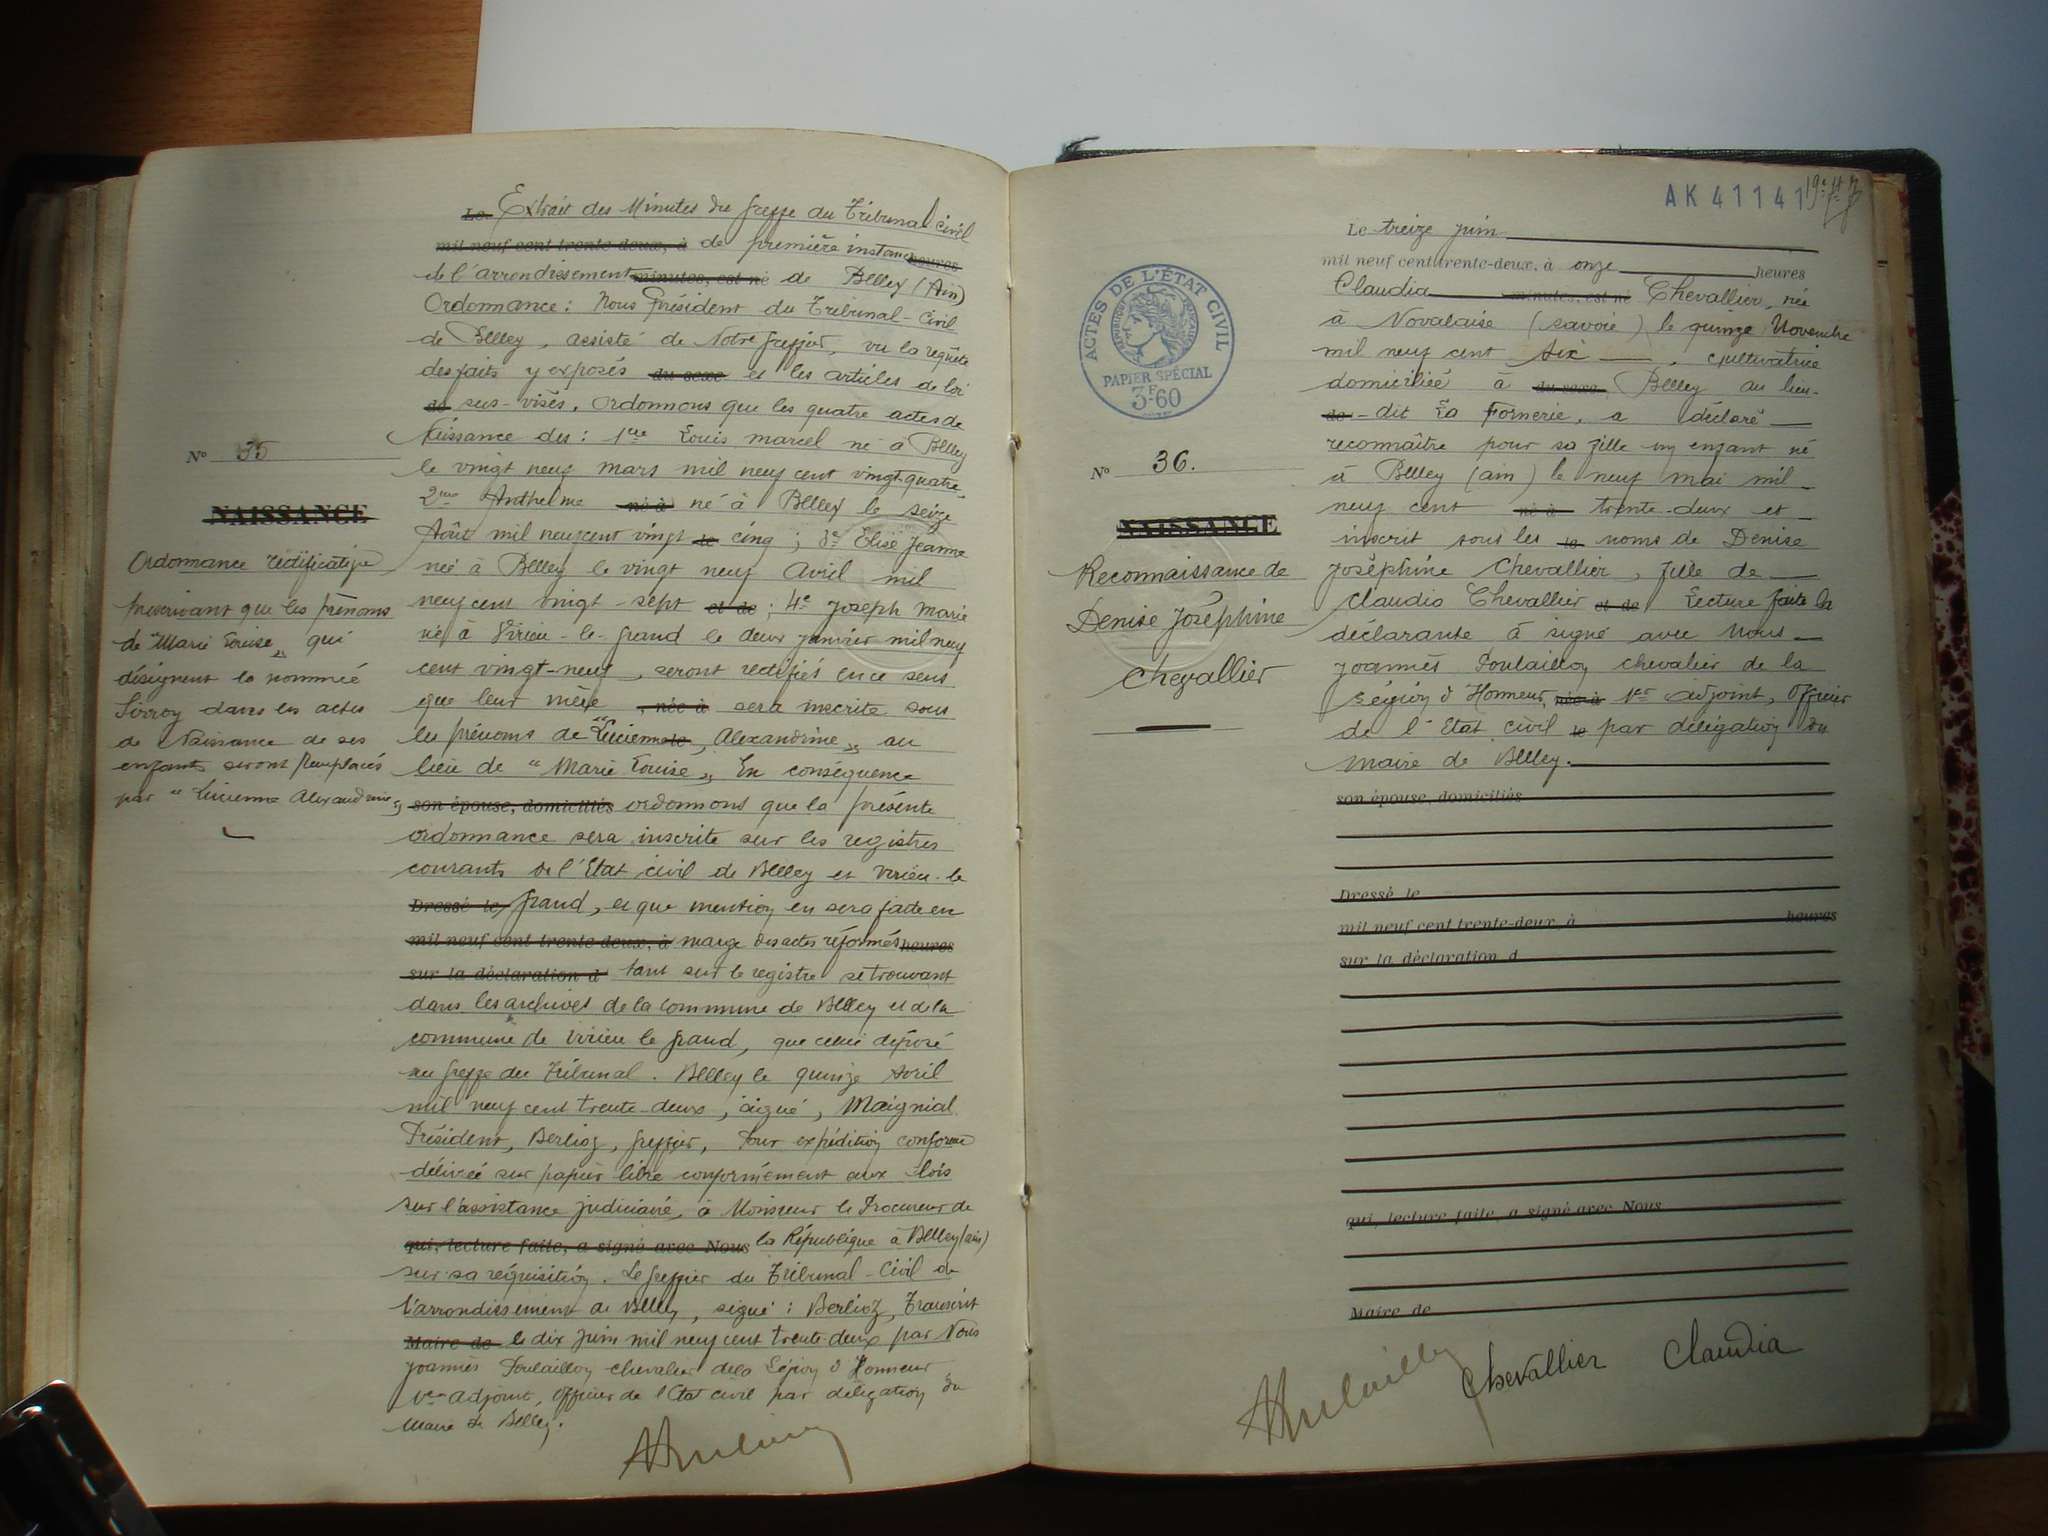 Extrait des Minutes du greffe du Tribunal civil
mil neuf cent trente-deux, à de première instance heures
de l'arrondissement minutes, est né de Belley (Ain)
Ordonnance : Nous Président du Tribunal-Civil
de Belley, assisté de Notre greffier, vu la requête
des faits y exposés du sexe et les articles de loi
de sus-visés, Ordonnons que les quatre actes de
Naissance des : 1er Louis Marcel né à Belley
le vingt neuf mars mil neuf cent vingt-quatre
2me Anthelme né à né à Belley le seize
Août mil neuf cent vingt le cinq ; 3e Elise Jeanne
née à Belley le vingt neuf Avril mil
neuf cent vingt-sept et de ; 4e Joseph Marie
né à Virieu-le-grand le deux janvier mil neuf
cent vingt-neuf, seront rectifiés en ce sens
que leur mère , née à sera inscrite sous
les prénoms de "Lucienne le, Alexandrine" au
lieu de "Marie Louise" En conséquence
son épouse, domiciliés ordonnons que la présente
ordonnance sera inscrite sur les registres
courants de l'Etat civil de Belley et Virieu-le
Dressé le grand, et que mention en sera faite en
mil neuf cent trente-deux, à marge des actes réformés heures
sur la déclaration d tant sur le registre se trouvant
dans les archives de la commune de Belley et de la
commune de Virieu le grand, que celui déposé
au greffe du Tribunal. Belley le quinze Avril
mil neuf cent trente-deux, signé, Maignial
Président, Berlioz, greffier, Pour expédition conforme
délivrée sur papier libre conformément aux lois
sur l'assistance judiciaire, à Monsieur le Procureur de
qui, lecture faite, a signé avec Nous la République à Belley (ain)
sur sa réquisition. Le greffier du Tribunal-Civil de
l'arrondissement de Belley, signé : Berlioz, Transcrit
Maire de le dix juin mil neuf cent trente deux par Nous
Joannès Poulaillon chevalier de la Légion d'Honneur
1er adjoint, Officier de l'Etat civil par délégation du
Maire de Belley.
N° 35
NAISSANCE
Ordonnance rectificative
prescrivant que les prénoms
de "Marie Louise" qui
désignent la nommée
dans les actes
de Naissance de ses
enfants seront remplacés
par "Lucienne Alexandrine"
AK 41141
Le treize juin
mil neuf cent trente-deux, à onze heures
Claudia minutes, est né Chevallier, née
à Novalaise (savoie) le quinze Novembre
mil neuf cent six, cultivatrice
domiciliée à du sexe Belley au lieu-
de -dit La Fornerie, a déclaré
reconnaître pour sa fille un enfant né
à Belley (ain) le neuf mai mil
neuf cent né à trente-deux et
inscrit sous les le noms de Denise
Joséphine Chevallier, fille de
Claudia Chevallier et de Lecture faite la
déclarante à signé avec Nous
Joannès Poulaillon chevalier de la
Légion d'Honneur, née à 1er adjoint, Officier
de l'Etat civil le par délégation du
Maire de Belley.
son épouse, domiciliés
Dressé le
mil neuf cent trente-deux, à heures
sur la déclaration d
qui, lecture faite, a signé avec Nous
Maire de
ACTES DE L'ÉTAT CIVIL
PAPIER SPÉCIAL
3F60
N° 36.
NAISSANCE
Reconnaissance de
Denise Joséphine
Chevallier
Chevallier Claudia